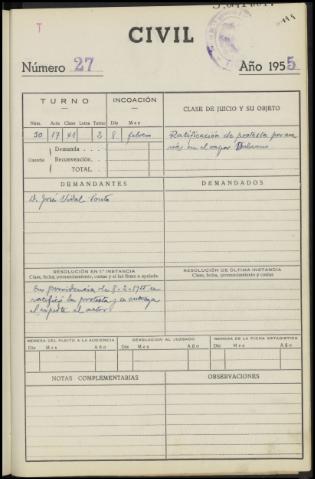 T
CIVIL
Número 27
Año 1955
TURNO
INCOACIÓN
CLASE DE JUICIO Y SU OBJETO
Núm. Acta Clase Letra Turno Día Mes
30 17 41 3 8 febrero
Ratificación de protesta por ave
rías en el vapor
Demanda
Cuantía Reconvención
TOTAL
DEMANDANTES
DEMANDADOS
D. José Vidal
RESOLUCIÓN EN 1ª INSTANCIA
Clase, fecha, pronunciamiento, costas y si fué firme o apelada
RESOLUCIÓN DE ÚLTIMA INSTANCIA
Clase, fecha, pronunciamiento, costas
En providencia de 8-2-955 se
ratificó la protesta y se entrega
al actor
REMESA DEL PLEITO A LA AUDIENCIA
DEVOLUCIÓN AL JUZGADO
REMESA DE LA FICHA ESTADÍSTICA
Día Mes Año
Día Mes Año
Día Mes Año
NOTAS COMPLEMENTARIAS
OBSERVACIONES